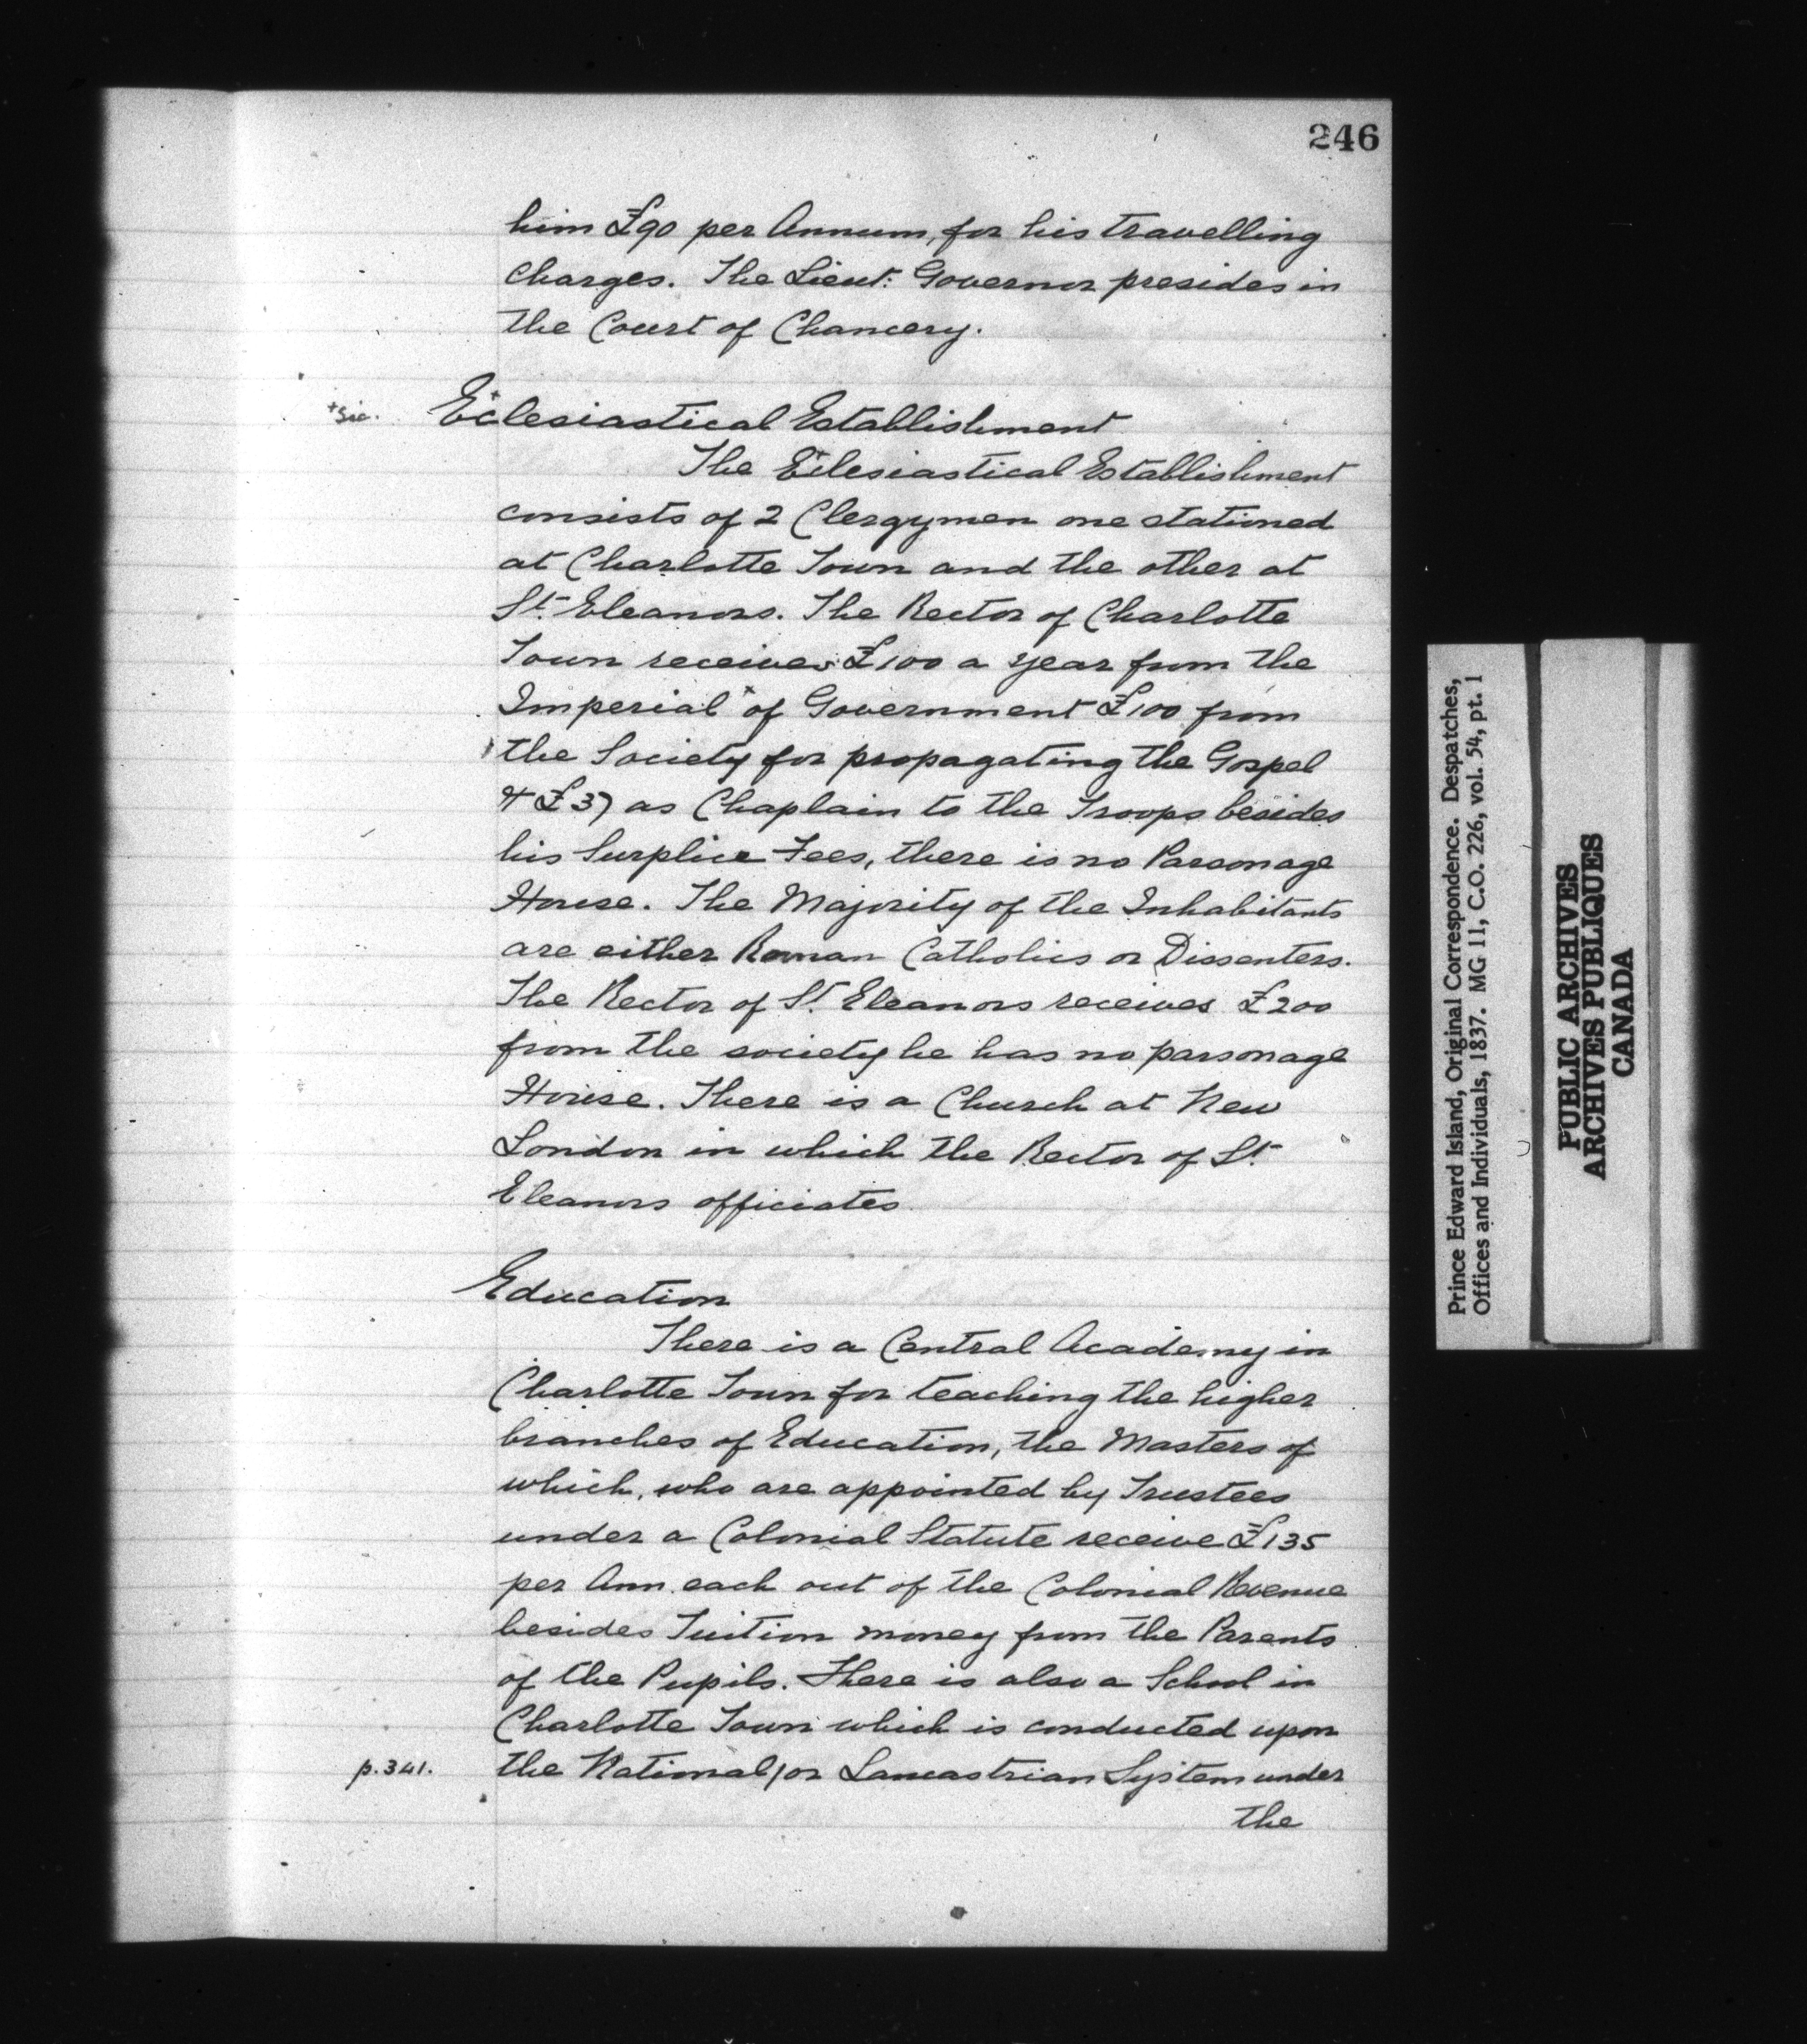 246
him £90 per Annum, for his travelling
charges. The Lieut: Governor presides in
the Court of Chancery.
+sic. Ec+lesiastical Establishment
The Ec+lesiastical Establishment
consists of 2 Clergymen one stationed
at Charlotte Town and the other at
St. Eleanors. The Rector of Charlotte
Town receives £100 a year from the
Imperial + of Government £100 from
the Society for propagating the Gospel
& £37 as Chaplain to the Troops besides
his Surplice Fees, there is no Parsonage
House. The Majority of the Inhabitants
are either Roman Catholics or Dissenters.
The Rector of St. Eleanors receives £200
from the society he has no parsonage
House. There is a Church at New
London in which the Rector of St.
Eleanors officiates
Education
There is a Central Academy in
Charlotte Town for teaching the higher
branches of Education, the Masters of
which, who are appointed by Trustees
under a Colonial Statute receive £135
per Ann. each out of the Colonial Revenue
besides Tuition money from the Parents
of the Pupils. There is also a School in
Charlotte Town which is conducted upon
p.341. the National/or Lancastrian System under
the
Prince Edward Island, Original Correspondence. Despatches,
Offices and Individuals, 1837. MG 11, C.O. 226, vol. 54, pt. 1
PUBLIC ARCHIVES
ARCHIVES PUBLIQUES
CANADA